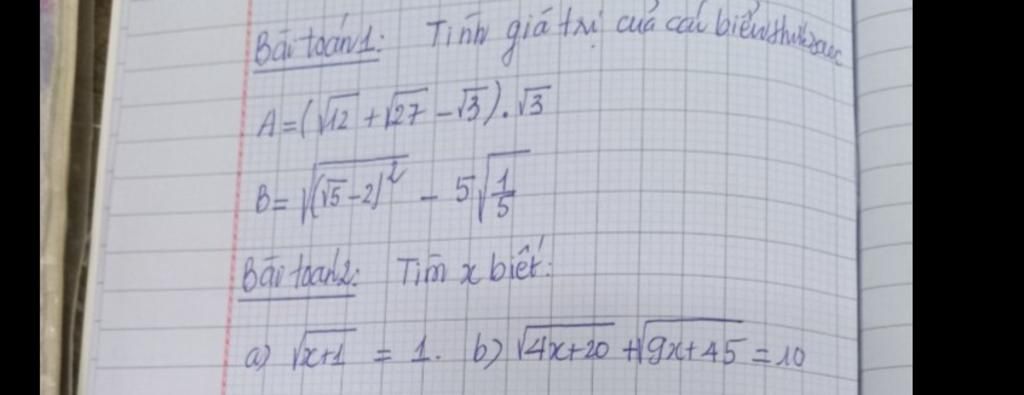 Bài toán 1: Tính giá trị của các biểu thức sau:
A = (√12 + √27 - √3) . √3
B = √(√5 - 2)² - 5√1/5
Bài toán 2: Tìm x biết:
a) √x+1 = 1. b) √4x+20 + √9x+45 = 10